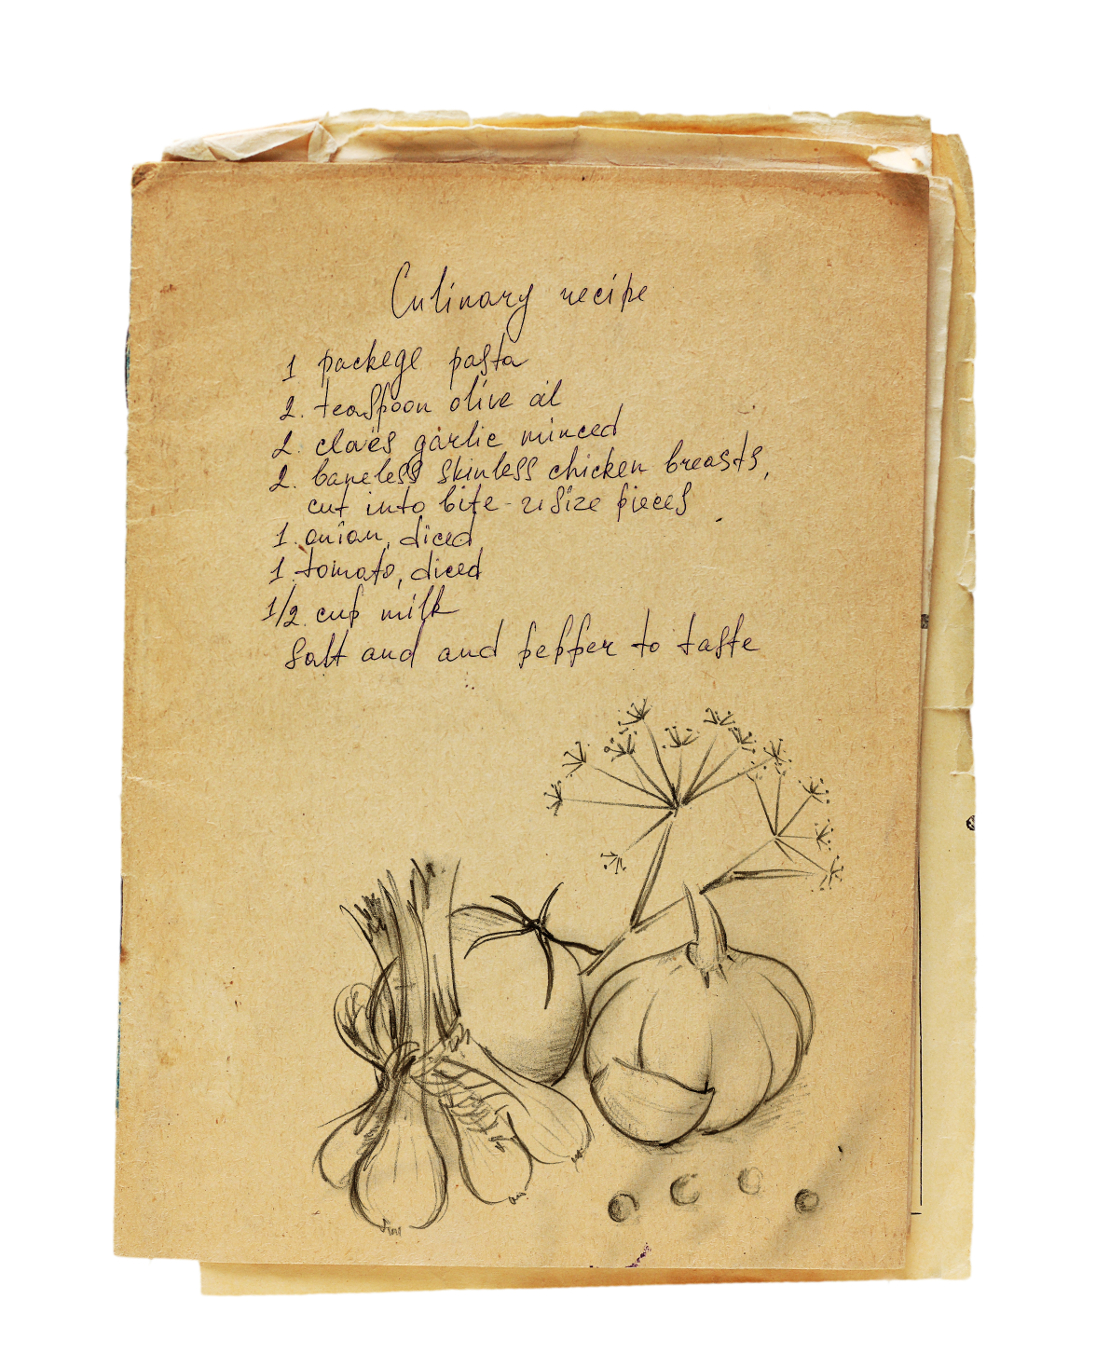 Culinary recipe
1 packege pasta
2. teaspoon olive oil
2. cloves garlic minced
2. boneless skinless chicken breasts,
cut into bite-size pieces
1. onion, diced
1. tomato, diced
1/2. cup milk
Salt and and pepper to taste